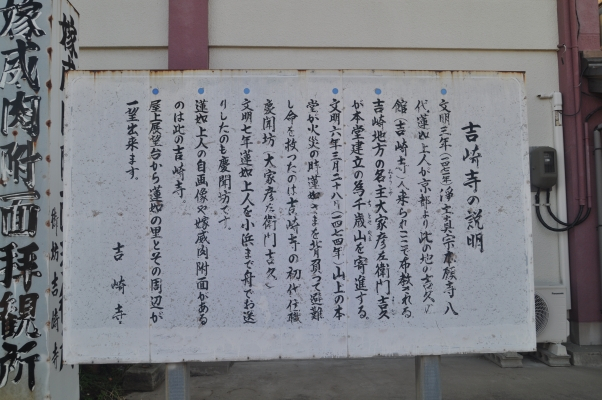 吉崎寺の説明
文明三年(一四七一年)浄土真宗本願寺八
代蓮如上人が京都より此の地の吉久の
館(吉崎寺)へ来られここで布教される
吉崎地方の名主大家彦左衛門吉久
が本堂建立の為千歳山を寄進する。
文明六年三月二十八日(一四七四年)山上の本
堂が火災の時蓮如さまを背負って避難
し命を救ったのは吉崎寺の初代住職
慶聞坊(大家彦左衛門吉久)
文明七年蓮如上人を小浜まで舟でお送
りしたのも慶聞坊です。
蓮如上人の自画像や嫁威肉附面がある
のは此の吉崎寺
屋上展望台から蓮如の里とその周辺が
一望出来ます。
吉崎寺
嫁威肉附面拝観所
嫁威肉
吉崎寺